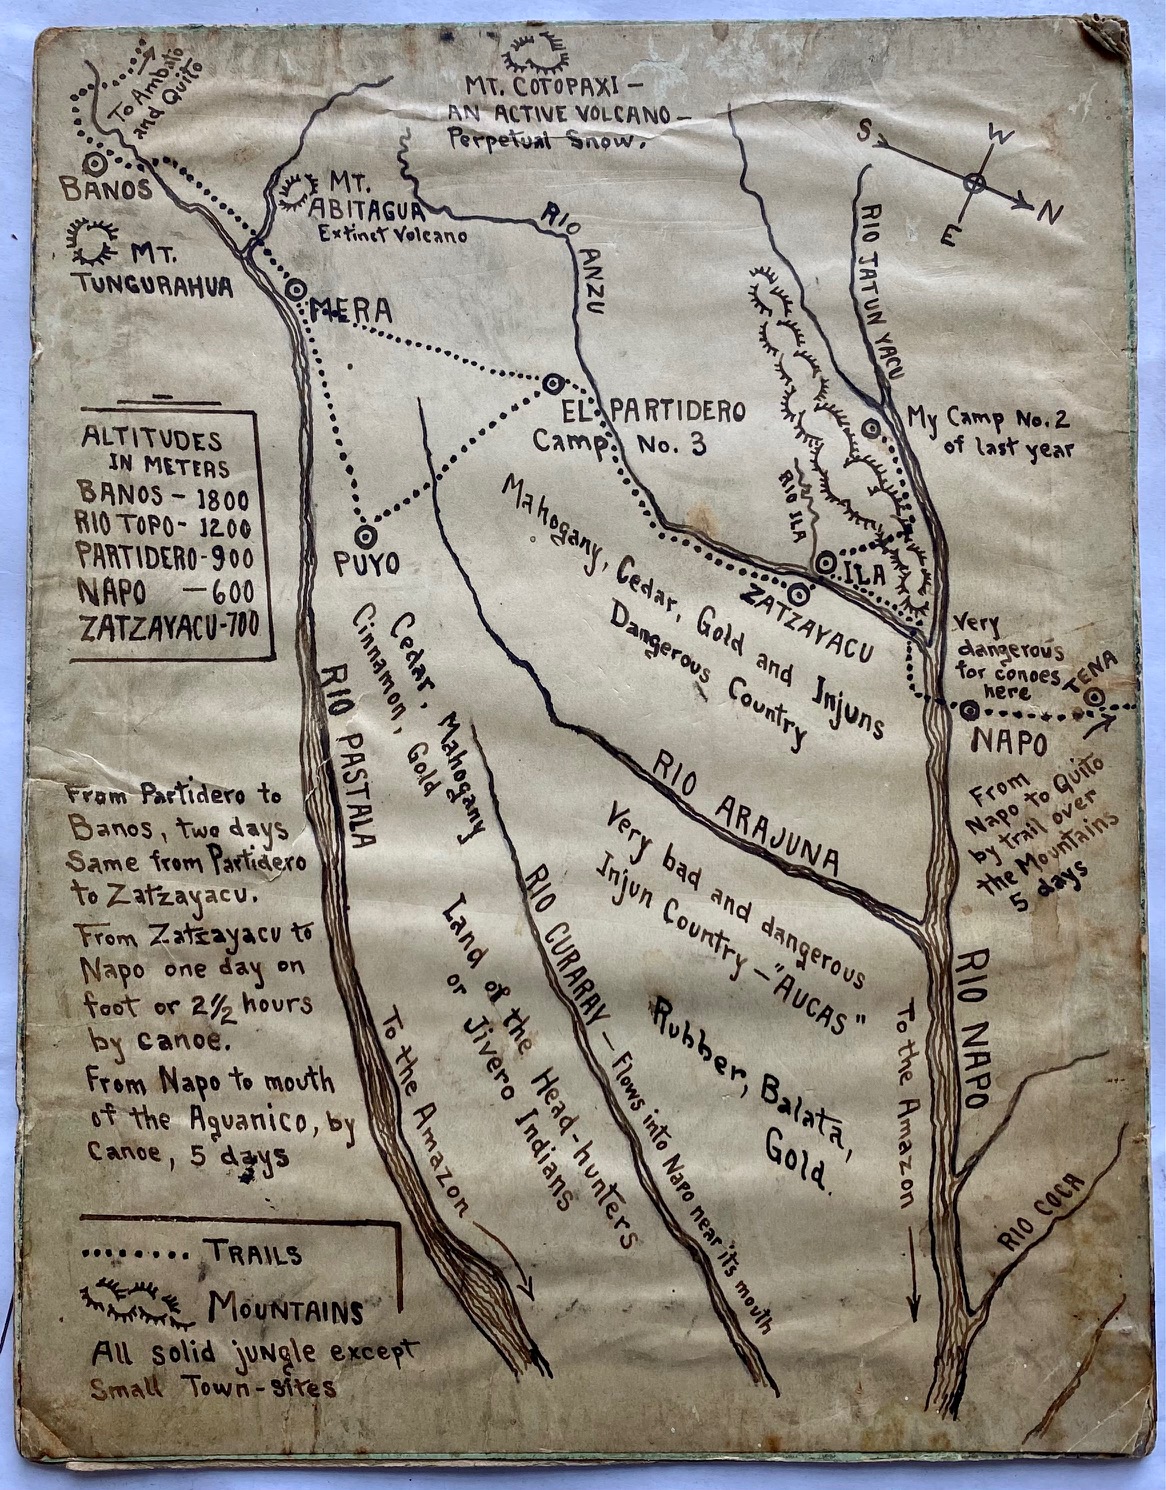 To Ambato
and Quito
MT. COTOPAXI —
AN ACTIVE VOLCANO —
Perpetual Snow.
S
W
N
E
BANOS
MT.
ABITAGUA
Extinct Volcano
MT.
TUNGURAHUA
RIO
ANZU
RIO JATUN YACU
MERA
EL PARTIDERO
Camp No. 3
My Camp No. 2
of last year
ALTITUDES
IN METERS
BANOS — 1800
RIO TOPO - 1200
PARTIDERO - 900
NAPO — 600
ZATZAYACU - 700
RIO ILA
PUYO
ILA
ZATZAYACU
Mahogany, Cedar, Gold and Injuns
Dangerous Country
Very
dangerous
for canoes
here
TENA
NAPO
From
Napo to Quito
by trail over
the Mountains
5 days
Cedar, Mahogany
Cinnamon, Gold
RIO PASTALA
RIO ARAJUNA
From Partidero to
Banos, two days
Same from Partidero
to Zatzayacu.
From Zatzayacu to
Napo one day on
foot or 2½ hours
by canoe.
From Napo to mouth
of the Aguanico, by
Canoe, 5 days
Very bad and dangerous
Injun Country — "AUCAS"
RIO CURARAY — Flows into Napo near it's mouth
Land of the Head-hunters
or Jivero Indians
Rubber, Balata,
Gold.
RIO NAPO
To the Amazon
To the Amazon
RIO COCA
TRAILS
MOUNTAINS
All solid jungle except
Small Town-sites